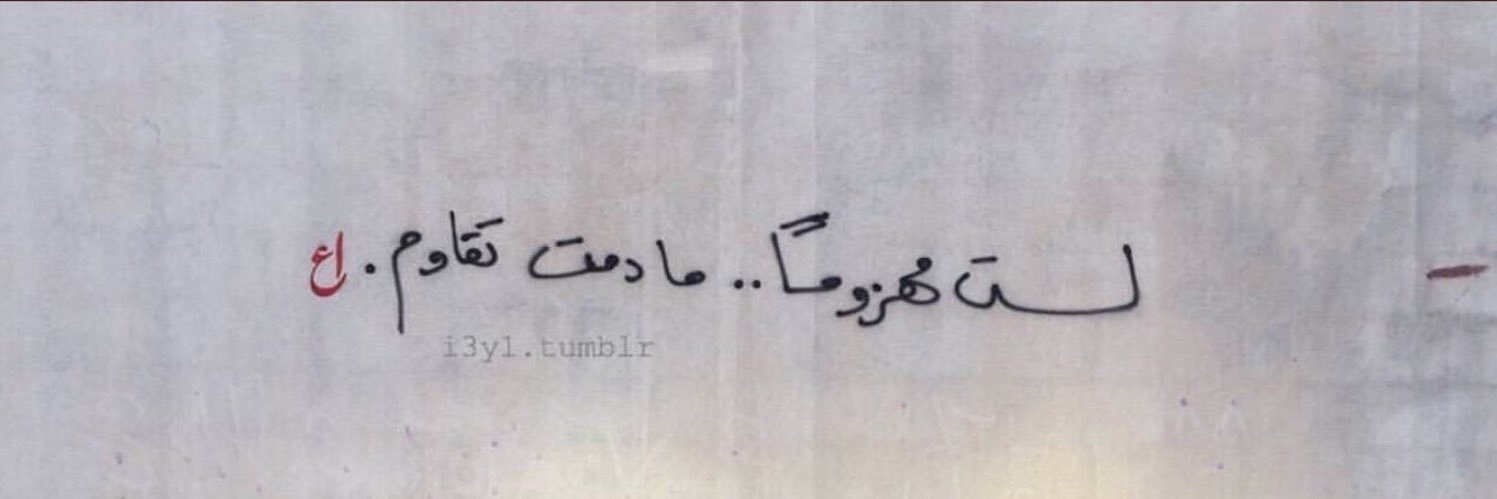 - لست مهزوماً.. مادمت تقاوم. اع
i3yl.tumblr